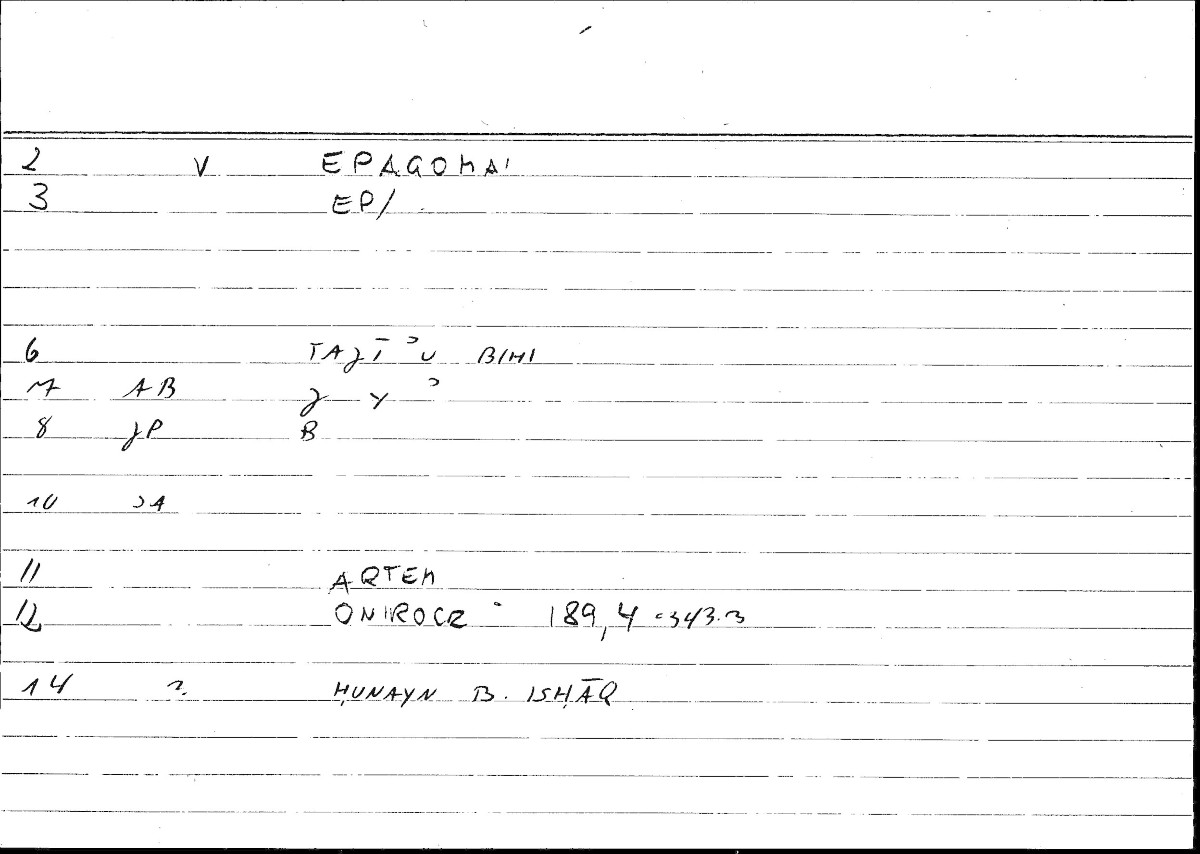 2 V EPAGOMAI
3 EP/
6 TAJĪʾU BIHI
7 AB J Y ʾ
8 JP B
10 ʾA
11 ARTEM
12 ONIROCR 189,4 = 343.3
14 ?. ḤUNAYN B. ISḤĀQ